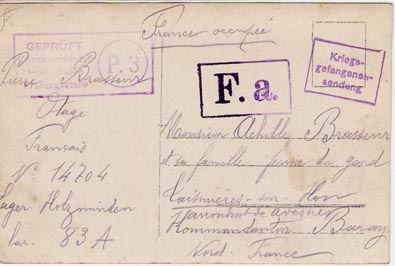 France occupée
GEPRÜFT
Kommandantur
P. 3
Prüfungsstelle
Kriegs-
gefangenen-
sendung
F. a.
Pierre Brasseur
Otage
Français
N° 14704
Lager Holzminden
bar. 83 A
Monsieur Achille Brasseur
et sa famille garde
sur Hon
par de Avesnes
Kommandantur Bavay
Nord. France